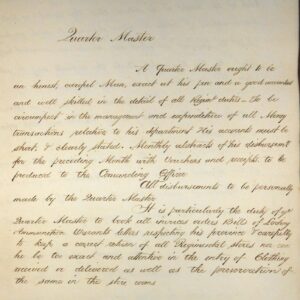 Quarter Master
A Quarter Master ought to be
an honest, careful Man, exact at his pen and a good accountant
and well skilled in the detail of all Regimt duties - To be
circumspect in the management and expenditure of all Money
transactions relative to his department His accounts must be
short & clearly stated. Monthly abstracts of his disbursemts
for the preceding Month with Vouchers and receipts to be
produced to the Commanding Officer
All disbursements to be personally
made by the Quarter Master
It is particularly the duty of ye
Quarter Master to look all orders Bills of Lading
Ammunition Warrants respecting his province & carefully
to keep a correct of all Regimental stores nor can
he be too exact and attentive in the entry of Clothing
received or delivered as well as the preservation of
the same in the store rooms